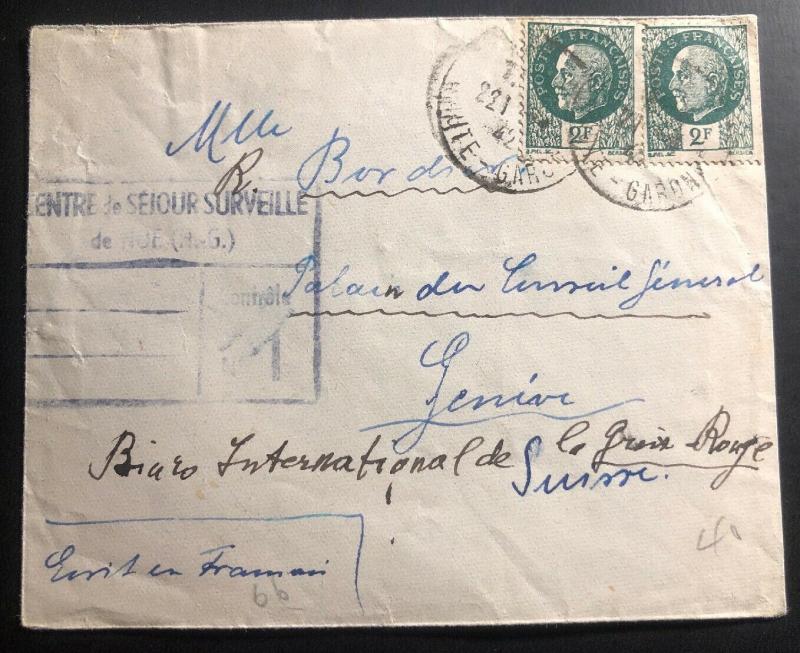 POSTES FRANÇAISES 2F
POSTES FRANÇAISES 2F
221
42
HAUTE-GARON
TE-GARONN
Mlle
R. Bordier
CENTRE de SEJOUR SURVEILLE
de NOE (H.-G.)
Contrôle
N° 1
Palais du Conseil Général
Genève
Biuro International de la Croix Rouge
Suisse.
Ecrit en Francais
66
41